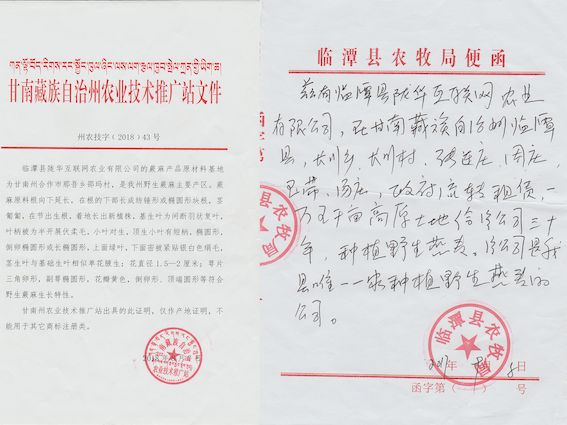 甘南藏族自治州农业技术推广站文件
州农技字（2018）43号
临潭县陇华互联网农业有限公司的蕨麻产品原材料基地
为甘南州合作市那吾乡邵玛村，是我州野生蕨麻主要产区。蕨
麻原料根向下延长，在根的下部长成纺锤形或椭圆形块根，茎
匍匐，在节出生根，着地长出新植株，基生叶为间断羽状复叶，
叶柄被为半开展伏柔毛，小叶对生，顶生小叶有短柄，椭圆形，
倒卵椭圆形或长椭圆形，上面绿叶，下面密被紧贴银白色绢毛，
茎生叶与基础生叶相似单花腋生；花直径1.5—2厘米；萼片
三角卵形，副萼椭圆形，花瓣黄色，倒卵形、顶端圆形等符合
野生蕨麻生长特性。
甘南州农业技术推广站出具的此证明，仅作产地证明，不
能用于其它商标注册类。
农业技术推广站
临潭县农牧局便函
兹有临潭县陇华互联网农业
有限公司，在甘南藏族自治州临潭
县，
流转租债，一
万五千亩高原土地给该公司三十
年，种植野生燕麦。该公司是我
县唯一一家种植野生燕麦的
公司。
临潭县农牧局
2017年 8日
函字第（一十）号